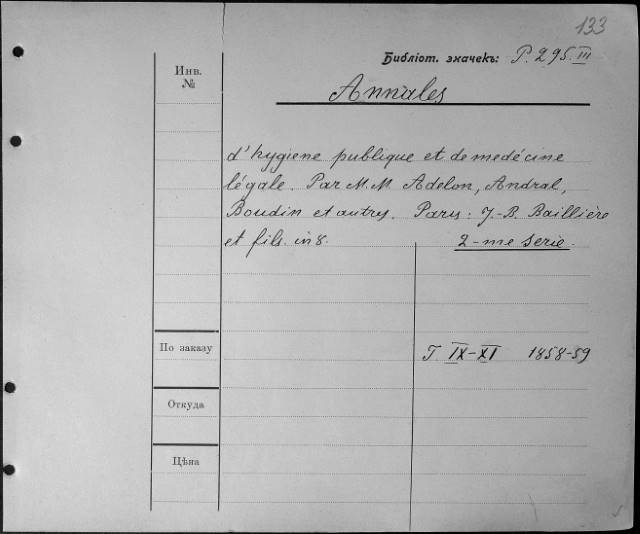 133
Библіот. значекъ: P. 295 III
Инв. №
Annales
d'hygiene publique et de medécine
légale. Par M.M. Adelon, Andral,
Boudin et autres. Paris: J.-B. Baillière
et fils. in 8.
2-me Serie.
По заказу
T. IX-XI 1858-59
Откуда
Цѣна